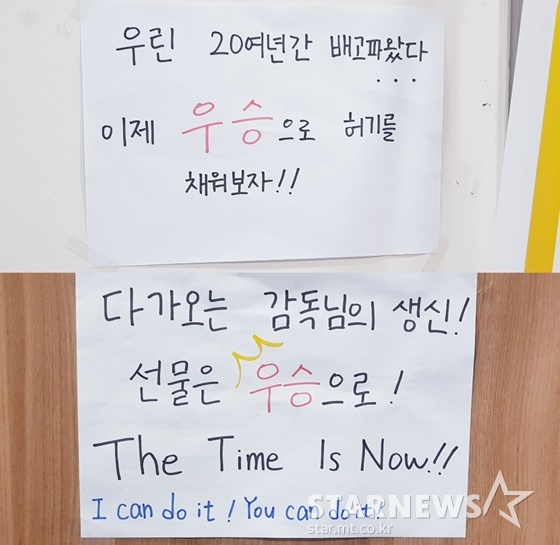 우린 20여년간 배고파왔다
...
이제 우승으로 허기를
채워보자!!
다가오는 감독님의 생신!
선물은 우승으로!
The Time Is Now!!
I can do it! You can do it!
STARNEWS
star.mt.co.kr